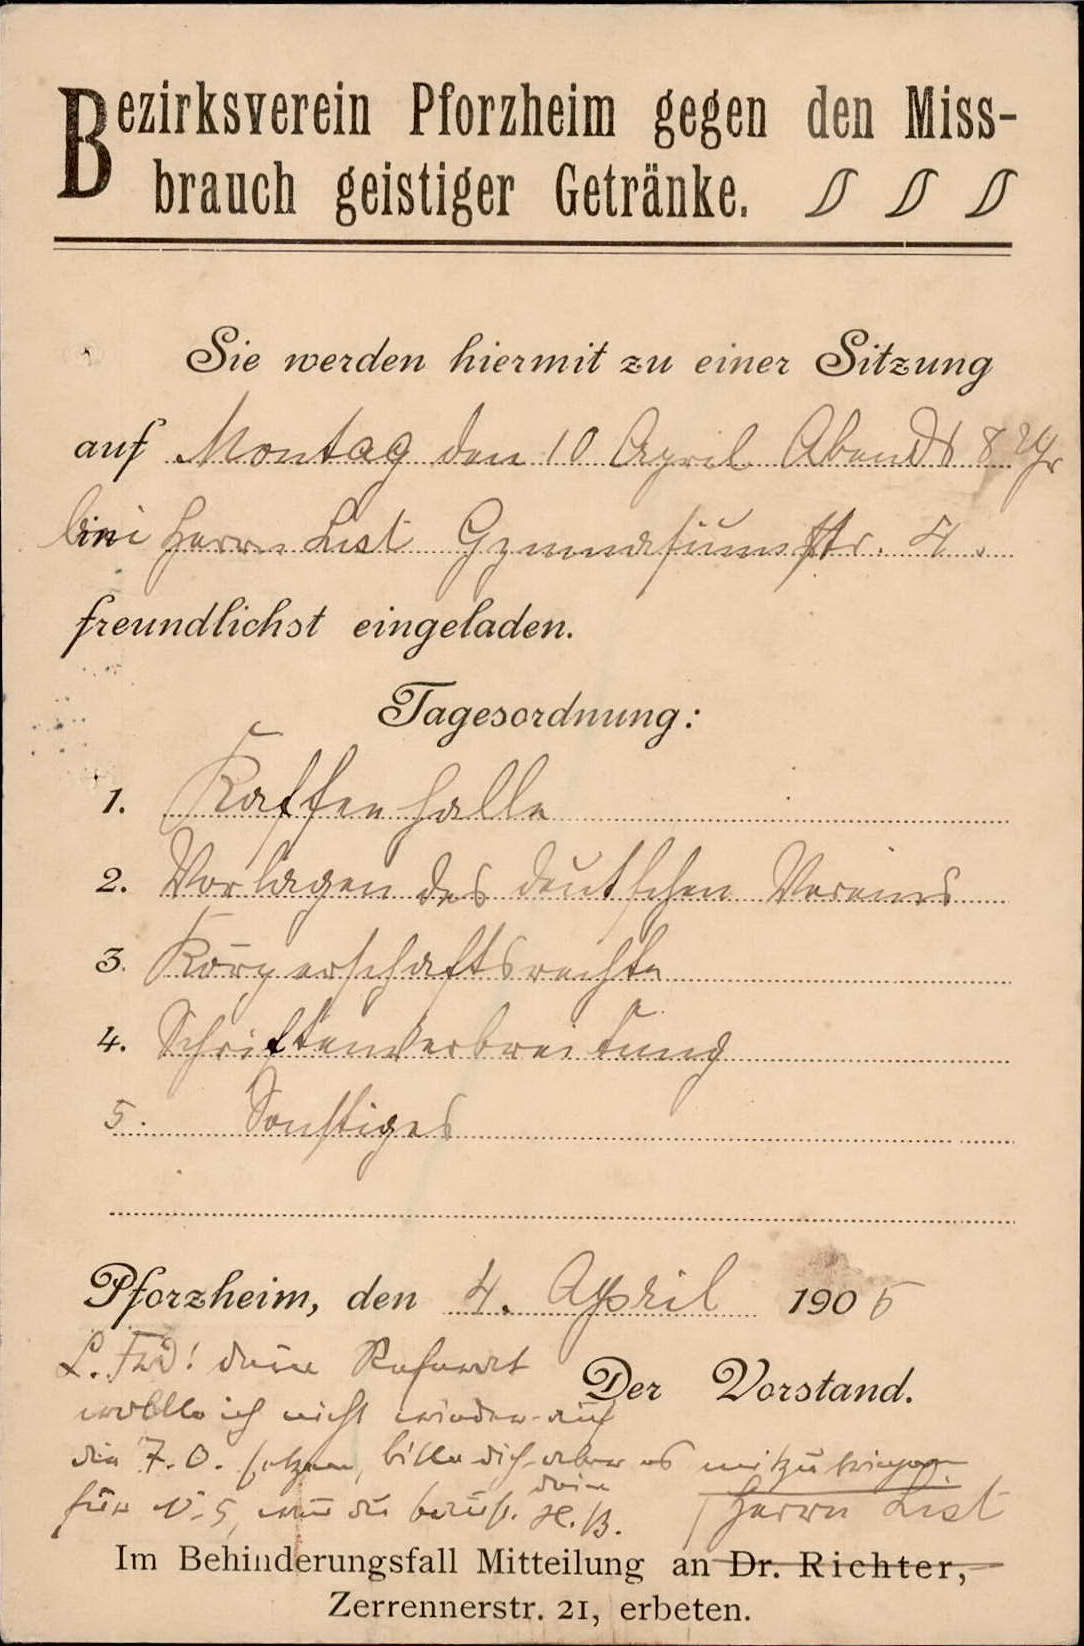 Bezirksverein Pforzheim gegen den Miss-
brauch geistiger Getränke.
Sie werden hiermit zu einer Sitzung
auf Montag den 10 April Abends 8 Uhr
bei Herrn List Gymnasiumstr. 4.
freundlichst eingeladen.
Tagesordnung:
1. Kaffeehalle
2. Vorlagen des deutschen Vereins
3. Körperschaftsrechte
4. Schriftenverbreitung
5. Sonstiges
Pforzheim, den 4. April 1905
L. Frd! dein Referat
Der Vorstand.
wollte ich nicht wieder auf
die T.O. setzen, bitte dich aber es mitzubringen
für N. 5, dein H.B.
Herrn List
Im Behinderungsfall Mitteilung an Dr. Richter,
Zerrennerstr. 21, erbeten.